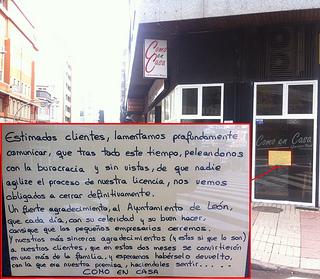 Como
en
Casa
Como en Casa
Estimados clientes, lamentamos profundamente
comunicar, que tras todo este tiempo, peleandonos
con la burocracia y sin vistas, de que nadie
agilize el proceso de nuestra licencia, nos vemos
obligados a cerrar definitivamente.
Un fuerte agradecimiento, al Ayuntamiento de León,
que cada día, con su celeridad y su buen hacer,
consigue que los pequeños empresarios cerremos.
Y nuestros más sinceros agradecimientos (y estos si que lo son)
a nuestros clientes, que en estos dos meses se convirtieron
en uno más de la familia, y esperamos habérselo devuelto,
con la que era nuestra premisa, haciendoles sentir.....
COMO EN CASA